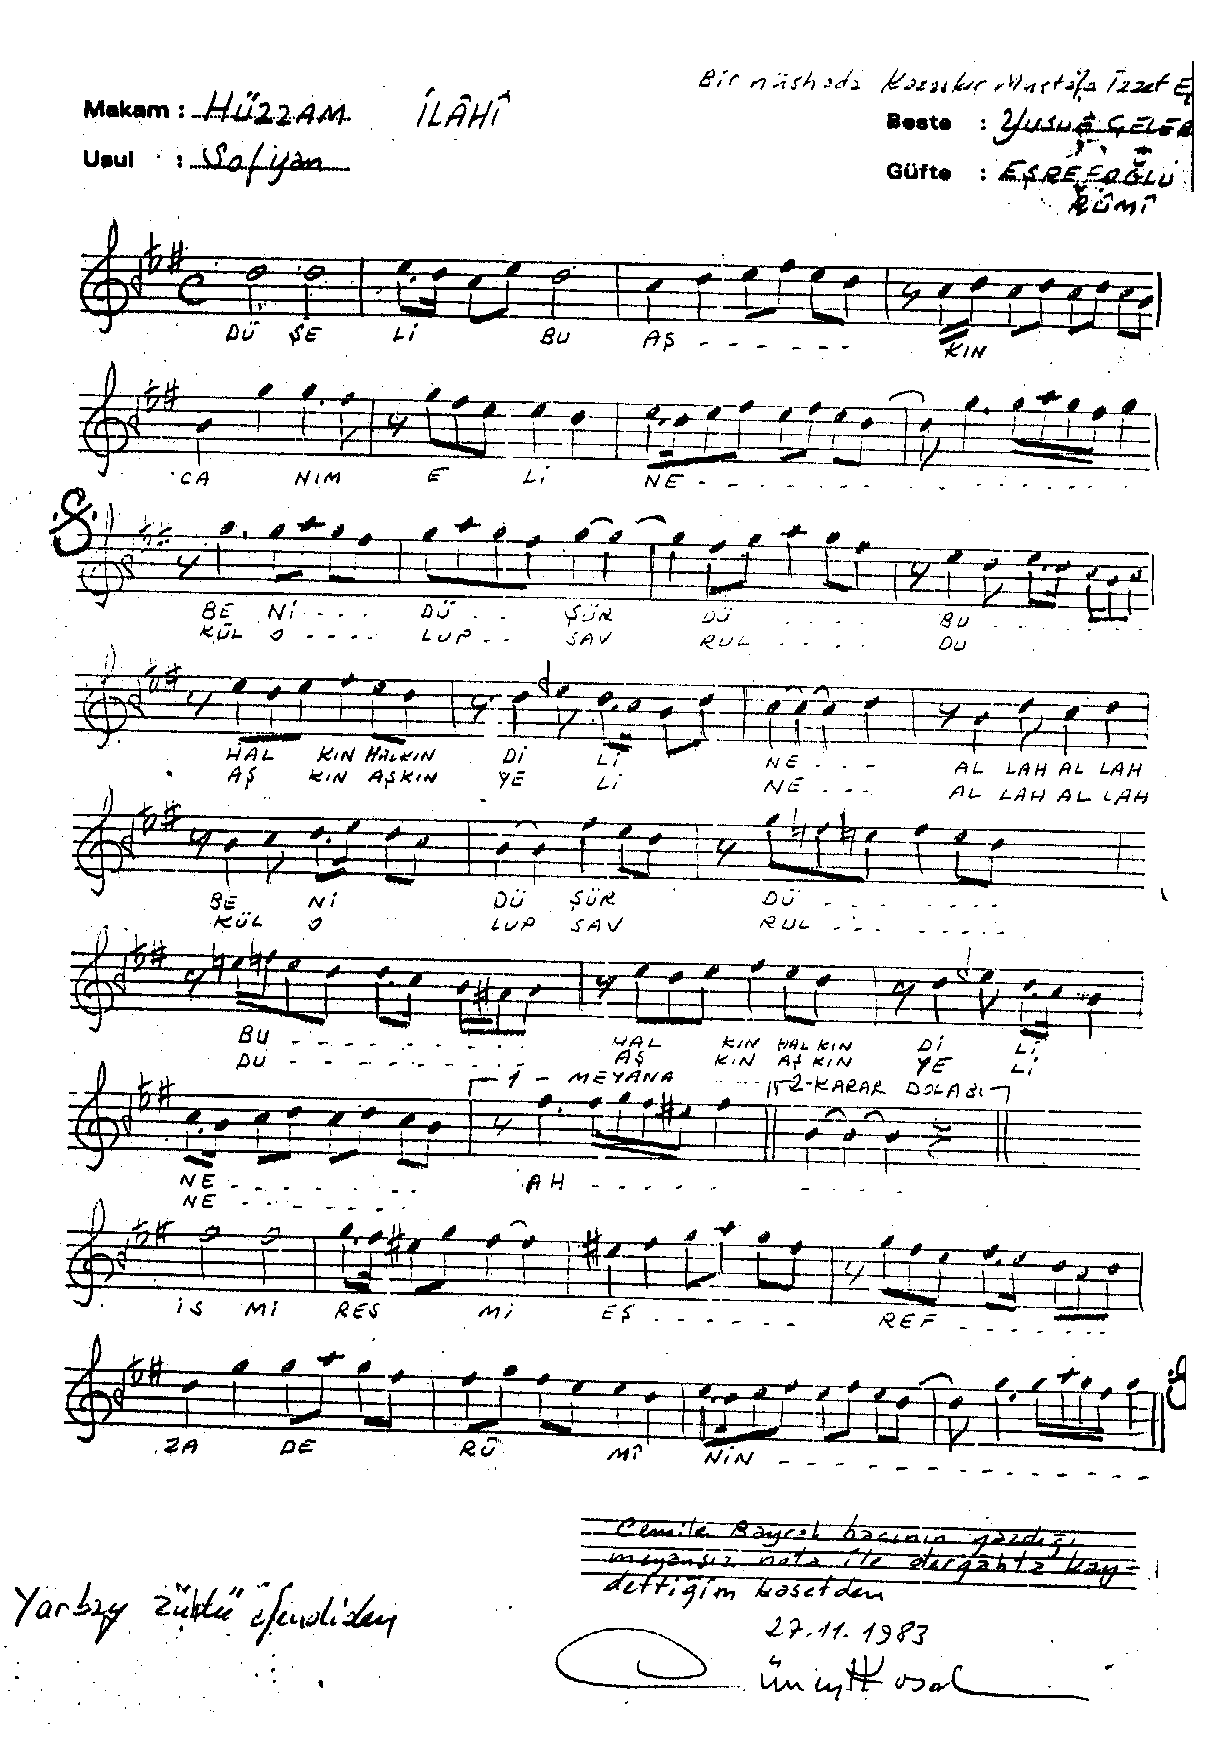 Bir nüshada Kazasker Mustafa İzzet E
Makam : HÜZZAM İLÂHÎ
Beste : YUSUF ÇELEB
Usul : Sofiyan
Güfte : EŞREFOĞLU
RÛMÎ
DÜ ŞE Lİ BU AŞ - - - - - - KIN
CA NIM E Lİ NE - - - - - - - - - - - -
BE Nİ - - - DÜ ŞÜR DÜ - - - - BU - - - -
KÜL O - - - - LUP - - SAV RUL - - - - DU
HAL KIN HALKIN Dİ Lİ NE - - - AL LAH AL LAH
AŞ KIN AŞKIN YE Lİ NE - - - AL LAH AL LAH
BE Nİ DÜ ŞÜR DÜ - - - - - - -
KÜL O LUP SAV RUL - - - - - - -
BU - - - - - - - - - HAL KIN HAL KIN Dİ Lİ
DU - - - - - - - - - AŞ KIN AŞ KIN YE Lİ
1 - MEYANA 2-KARAR DOLABI
NE - - - - - - - AH - - - - - -
NE - - - - - - -
İS Mİ RES Mİ EŞ - - - - - - REF - - - - - -
ZA DE RÛ MÎ NİN - - - - - - - - - - - -
Cemile Bayrak bacının yazdığı
meyansız nota ile dergâhta kay-
dettiğim kasetden
Yarbay Zühtü Efendiden
27.11.1983